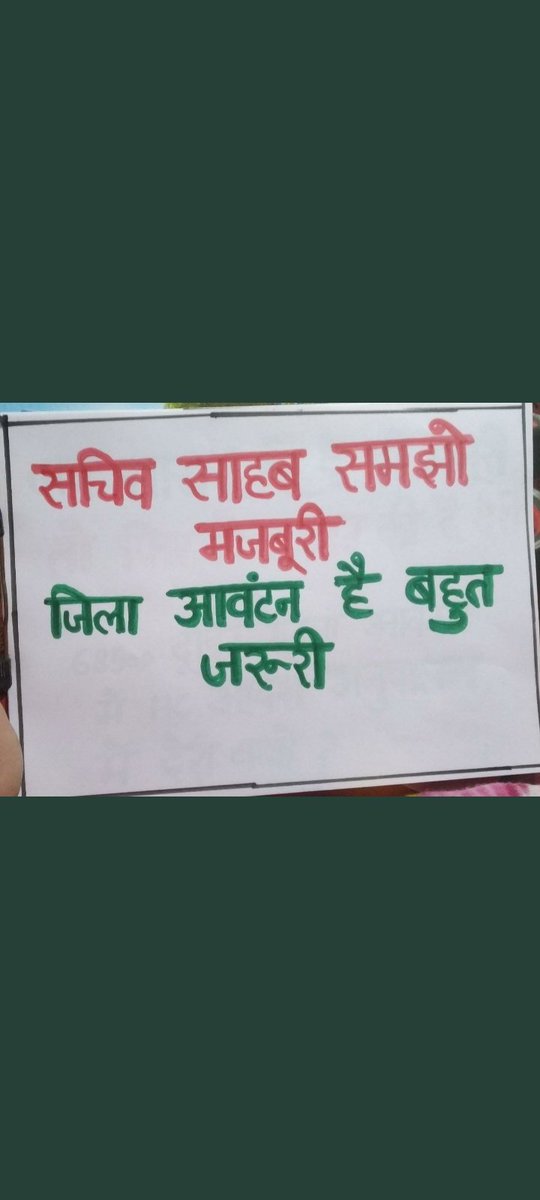 सचिव साहब समझो
मजबूरी
जिला आवंटन है बहुत
जरूरी